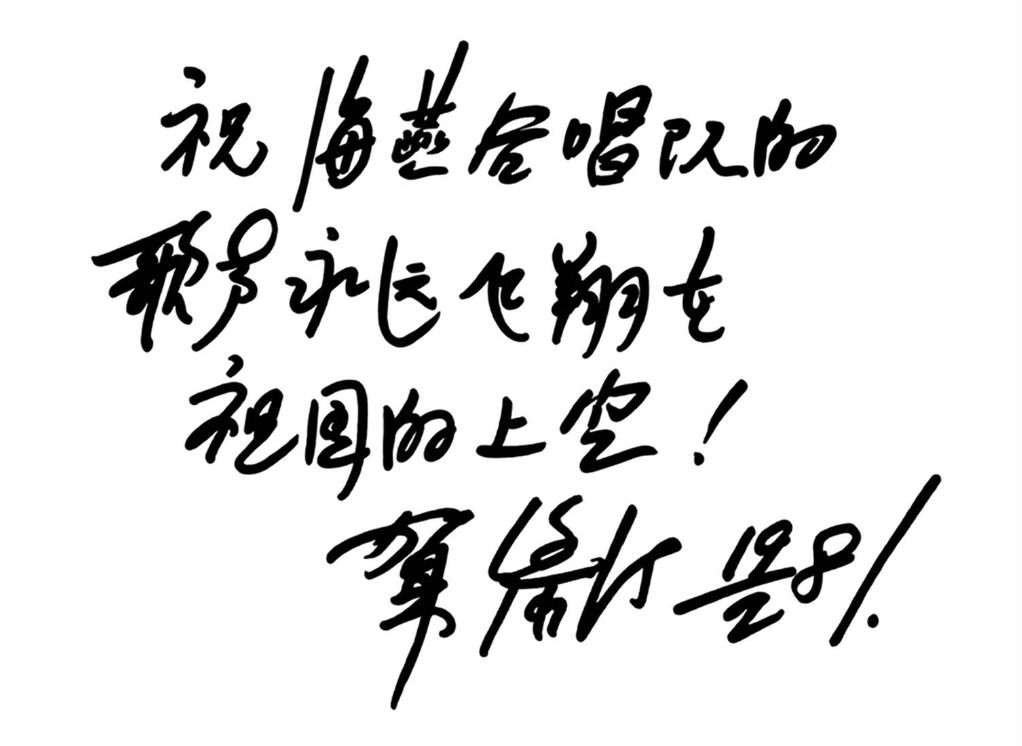 祝海燕合唱队的
歌声永远飞翔在
祖国的上空!
贺